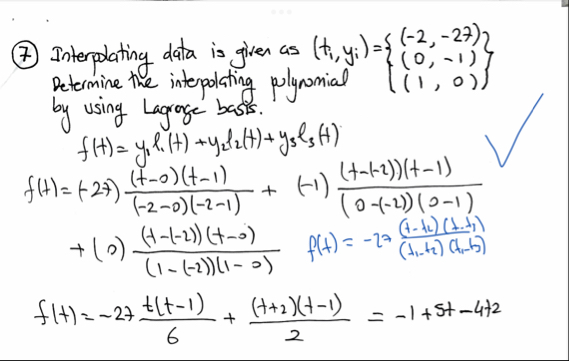 ⑦ Interpolating data is given as (ti, yi) = { (-2, -27)
(0, -1)
(1, 0) }
Determine the interpolating polynomial
by using Lagrange basis.
f(t) = y₁l₁(t) + y₂l₂(t) + y₃l₃(t)
f(t) = (-27) (t-0)(t-1) / (-2-0)(-2-1) + (-1) (t-(-2))(t-1) / (0-(-2))(0-1)
+ (0) (t-(-2))(t-0) / (1-(-2))(1-0)
f(t) = -27 (t-t₂)(t-t₃) / (t₁-t₂)(t₁-t₃)
f(t) = -27 t(t-1) / 6 + (t+2)(t-1) / 2 = -1+5t-4t2